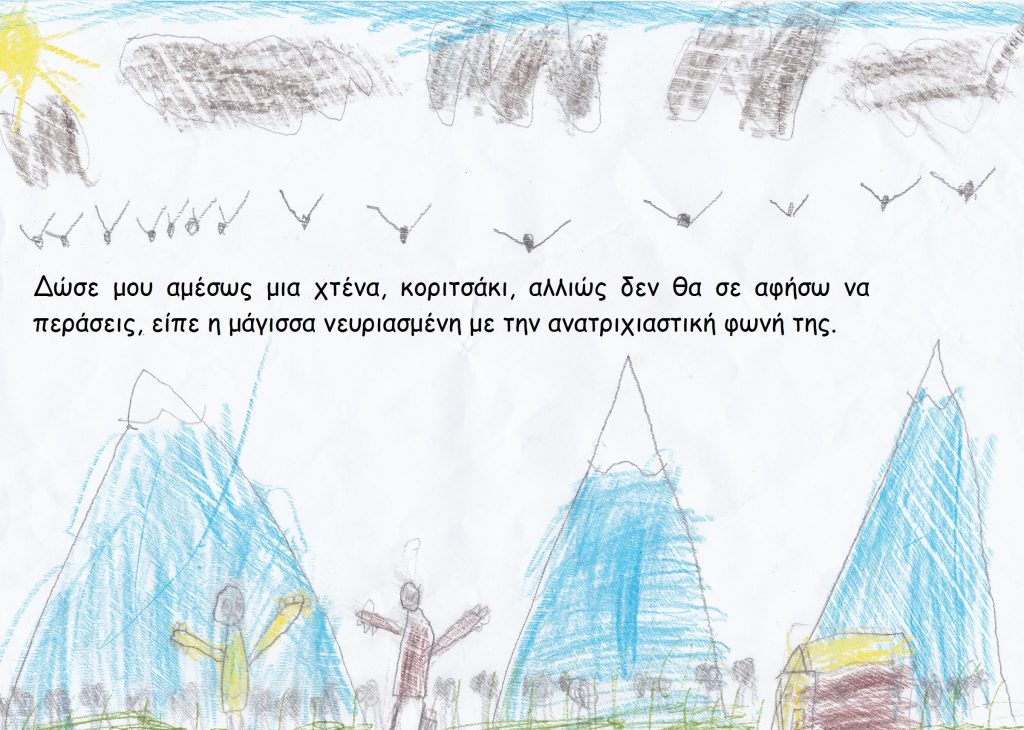 Δώσε μου αμέσως μια χτένα, κοριτσάκι, αλλιώς δεν θα σε αφήσω να
περάσεις, είπε η μάγισσα νευριασμένη με την ανατριχιαστική φωνή της.